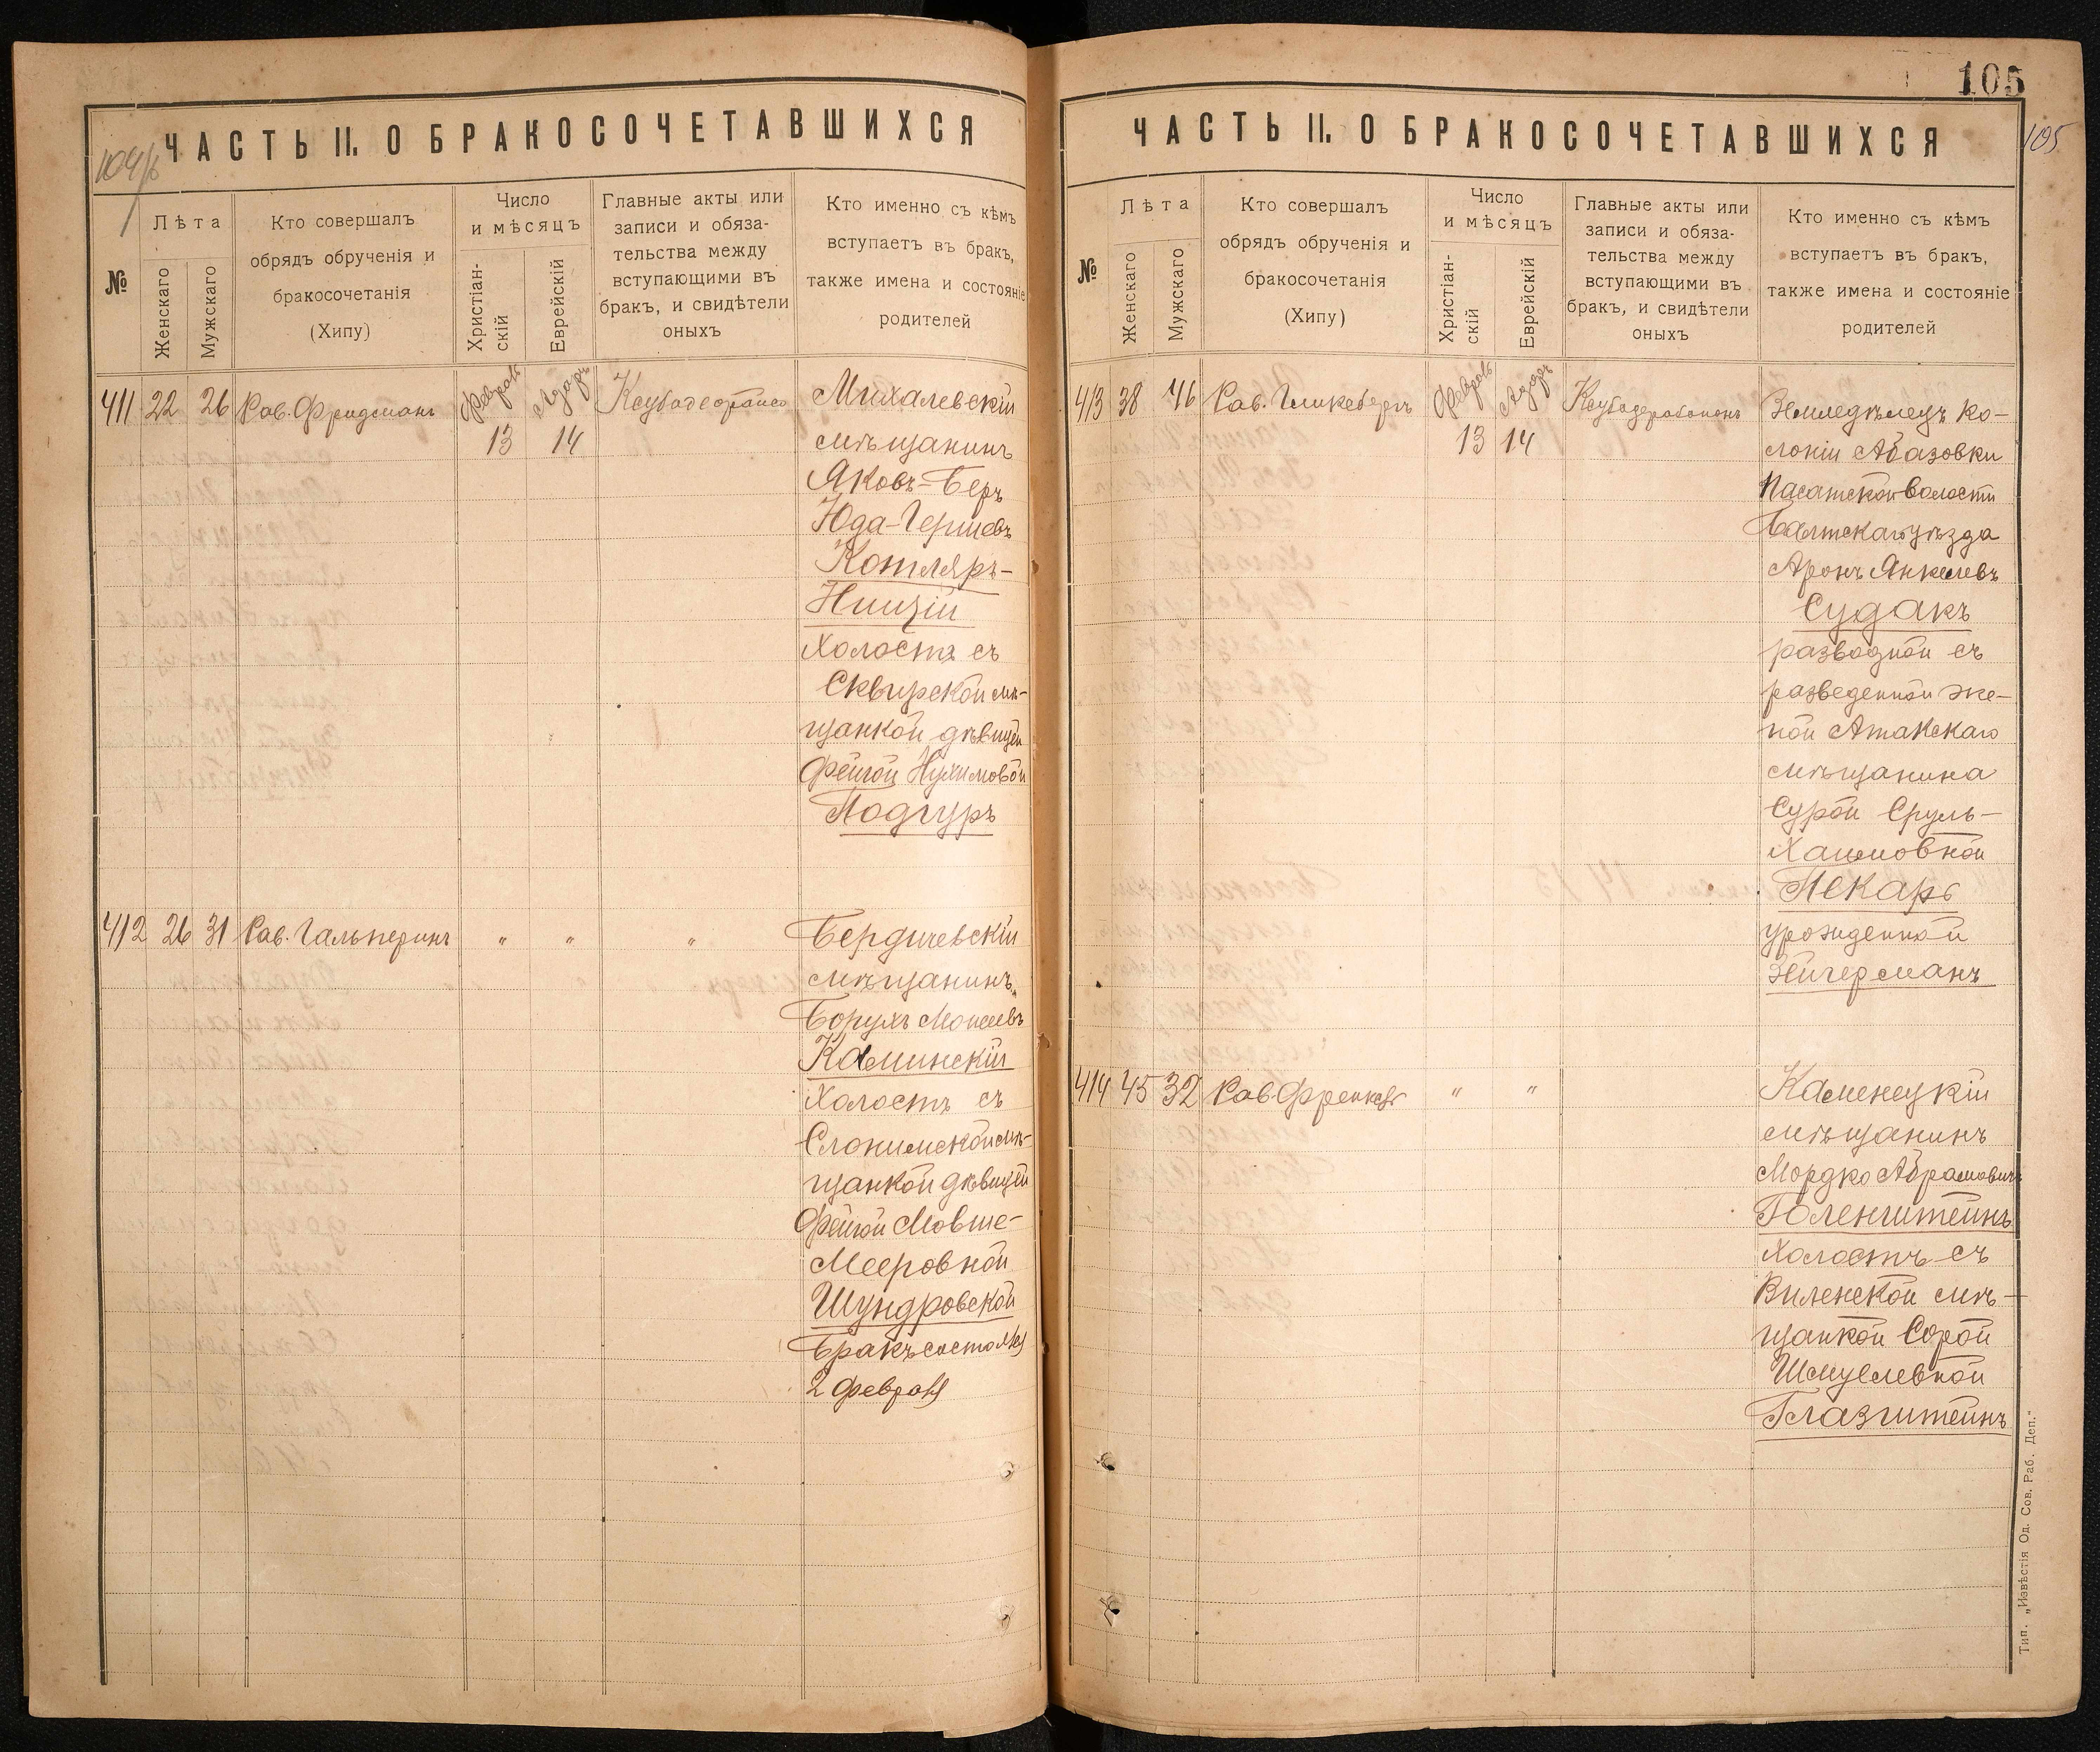 104/б
ЧАСТЬ II. О БРАКОСОЧЕТАВШИХСЯ
№
Лѣта
Женскаго
Мужскаго
Кто совершалъ
обрядъ обрученія и
бракосочетанія
(Хипу)
Число
и мѣсяцъ
Христіан-
скій
Еврейскій
Главные акты или
записи и обяза-
тельства между
вступающими въ
бракъ, и свидѣтели
оныхъ
Кто именно съ кѣмъ
вступаетъ въ бракъ,
также имена и состояніе
родителей
411 22 26 Рав. Фридманъ
13 14
Михалевскій
мѣщанинъ
Яковъ-Беръ
Юда-Гершевъ
Котляръ-
Ницзій
Холостъ съ
Сквирской мѣ-
щанкой дѣвицей
Фейгой Нухимовой
Подгуръ
412 26 31 Рав. Гальперинъ " " "
Бердичевскій
мѣщанинъ
Борухъ Мошевъ
Каминскій
Холостъ съ
Слонимской мѣ-
щанкой дѣвицей
Фейгой Мовше-
Мееровной
Шундровской
Бракъ состоялся
2 Февраля
105
105
ЧАСТЬ II. О БРАКОСОЧЕТАВШИХСЯ
№
Лѣта
Женскаго
Мужскаго
Кто совершалъ
обрядъ обрученія и
бракосочетанія
(Хипу)
Число
и мѣсяцъ
Христіан-
скій
Еврейскій
Главные акты или
записи и обяза-
тельства между
вступающими въ
бракъ, и свидѣтели
оныхъ
Кто именно съ кѣмъ
вступаетъ въ бракъ,
также имена и состояніе
родителей
413 38 46 Рав. Гликсбергъ
13 14
Земледѣлецъ ко-
лоніи Абазовки
Пасатской волости
Балтскаго уѣзда
Аронъ Янкелевъ
Судакъ
разводной съ
разведенной же-
ной Атакскаго
мѣщанина
Сурой Сруль-
Хаимовной
Пекарь
урожденной
Эйгерманъ
414 45 32 Рав. Френкель " "
Каменецкій
мѣщанинъ
Мордко Абрамовичъ
Голенштейнъ
Холостъ съ
Виленской мѣ-
щанкой Сорой
Шмулевной
Глазштейнъ
Тип. „Извѣстія Од. Сов. Раб. Деп."